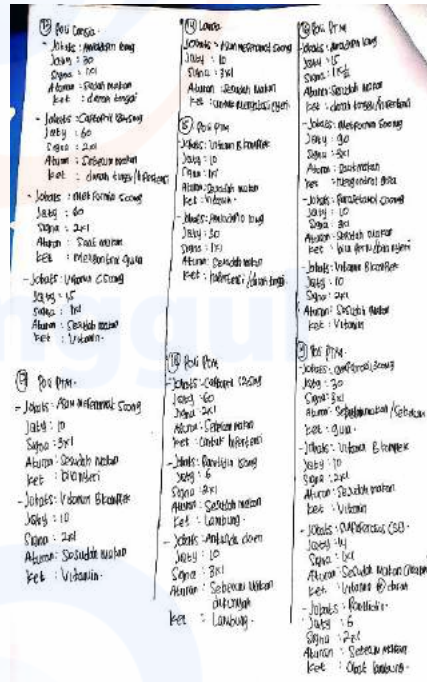 ⑬ Poli Lansia
- Jobats : Amlodipin 10mg
Jatg : 30
Signa : 1x1
Aturan : Sesudah makan
ket : darah tinggi
- Jobats : Captopril 12,5mg
Jatg : 60
Signa : 2x1
Aturan : Sebelum makan
ket : darah tinggi/hipertensi
- Jobats : Metformin 500mg
Jatg : 60
Signa : 2x1
Aturan : Saat makan
ket : mengontrol gula
- Jobats : Vitamin C 50mg
Jatg : 15
Signa : 1x1
Aturan : Sesudah makan
ket : Vitamin.
Poli PTM.
- Jobats : Asam Mefenamat 500mg
Jatg : 10
Signa : 3x1
Aturan : Sesudah makan
ket : nyeri
- Jobats : Vitamin B komplek
Jatg : 10
Signa : 2x1
Aturan : Sesudah makan
ket : Vitamin.
⑭ Lansia
Jobats : Asam Mefenamat 500mg
Jatg : 10
Signa : 3x1
Aturan : Sesudah makan
ket : untuk mengatasi nyeri.
⑮ Poli PTM
- Jobats : Vitamin B komplek
Jatg : 10
Signa : 1x1
Aturan : Sesudah makan
ket : Vitamin.
- Jobats : Amlodipin 10mg
Jatg : 30
Signa : 1x1
Aturan : Sesudah makan
ket : hipertensi/darah tinggi.
Poli PTM
- Jobats : Captopril 12,5mg
Jatg : 60
Signa : 2x1
Aturan : Sebelum makan
ket : untuk hipertensi
- Jobats : Ranitidin
Jatg : 6
Signa : 2x1
Aturan : Sesudah makan
ket : Lambung.
- Jobats : Antasida doen
Jatg : 10
Signa : 3x1
Aturan : Sebelum makan
dikunyah
ket : Lambung.
Poli PTM
Jobats : Amlodipin 10mg
Jatg : 15
Signa :
Aturan : Sesudah makan
ket : darah tinggi/hipertensi
- Jobats : Metformin 500mg
Jatg : 90
Signa : 3x1
Aturan : Saat makan
ket : mengontrol gula
- Jobats : Paracetamol 500mg
Jatg : 10
Signa : 3x1
Aturan : Sesudah makan
ket : bila perlu/bila nyeri
- Jobats : Vitamin B komplek
Jatg : 10
Signa : 2x1
Aturan : Sesudah makan
ket : Vitamin
Poli PTM.
- Jobats :
Jatg : 30
Signa : 3x1
Aturan :
ket : gula.
- Jobats : Vitamin B komplek
Jatg : 10
Signa : 2x1
Aturan : Sesudah makan
ket : Vitamin
- Jobats :
Jatg : 14
Signa : 1x1
Aturan : Sesudah makan
ket : Vitamin darah
- Jobats : Ranitidin.
Jatg : 6
Signa : 2x1
Aturan : Sebelum makan
ket : Obat lambung.